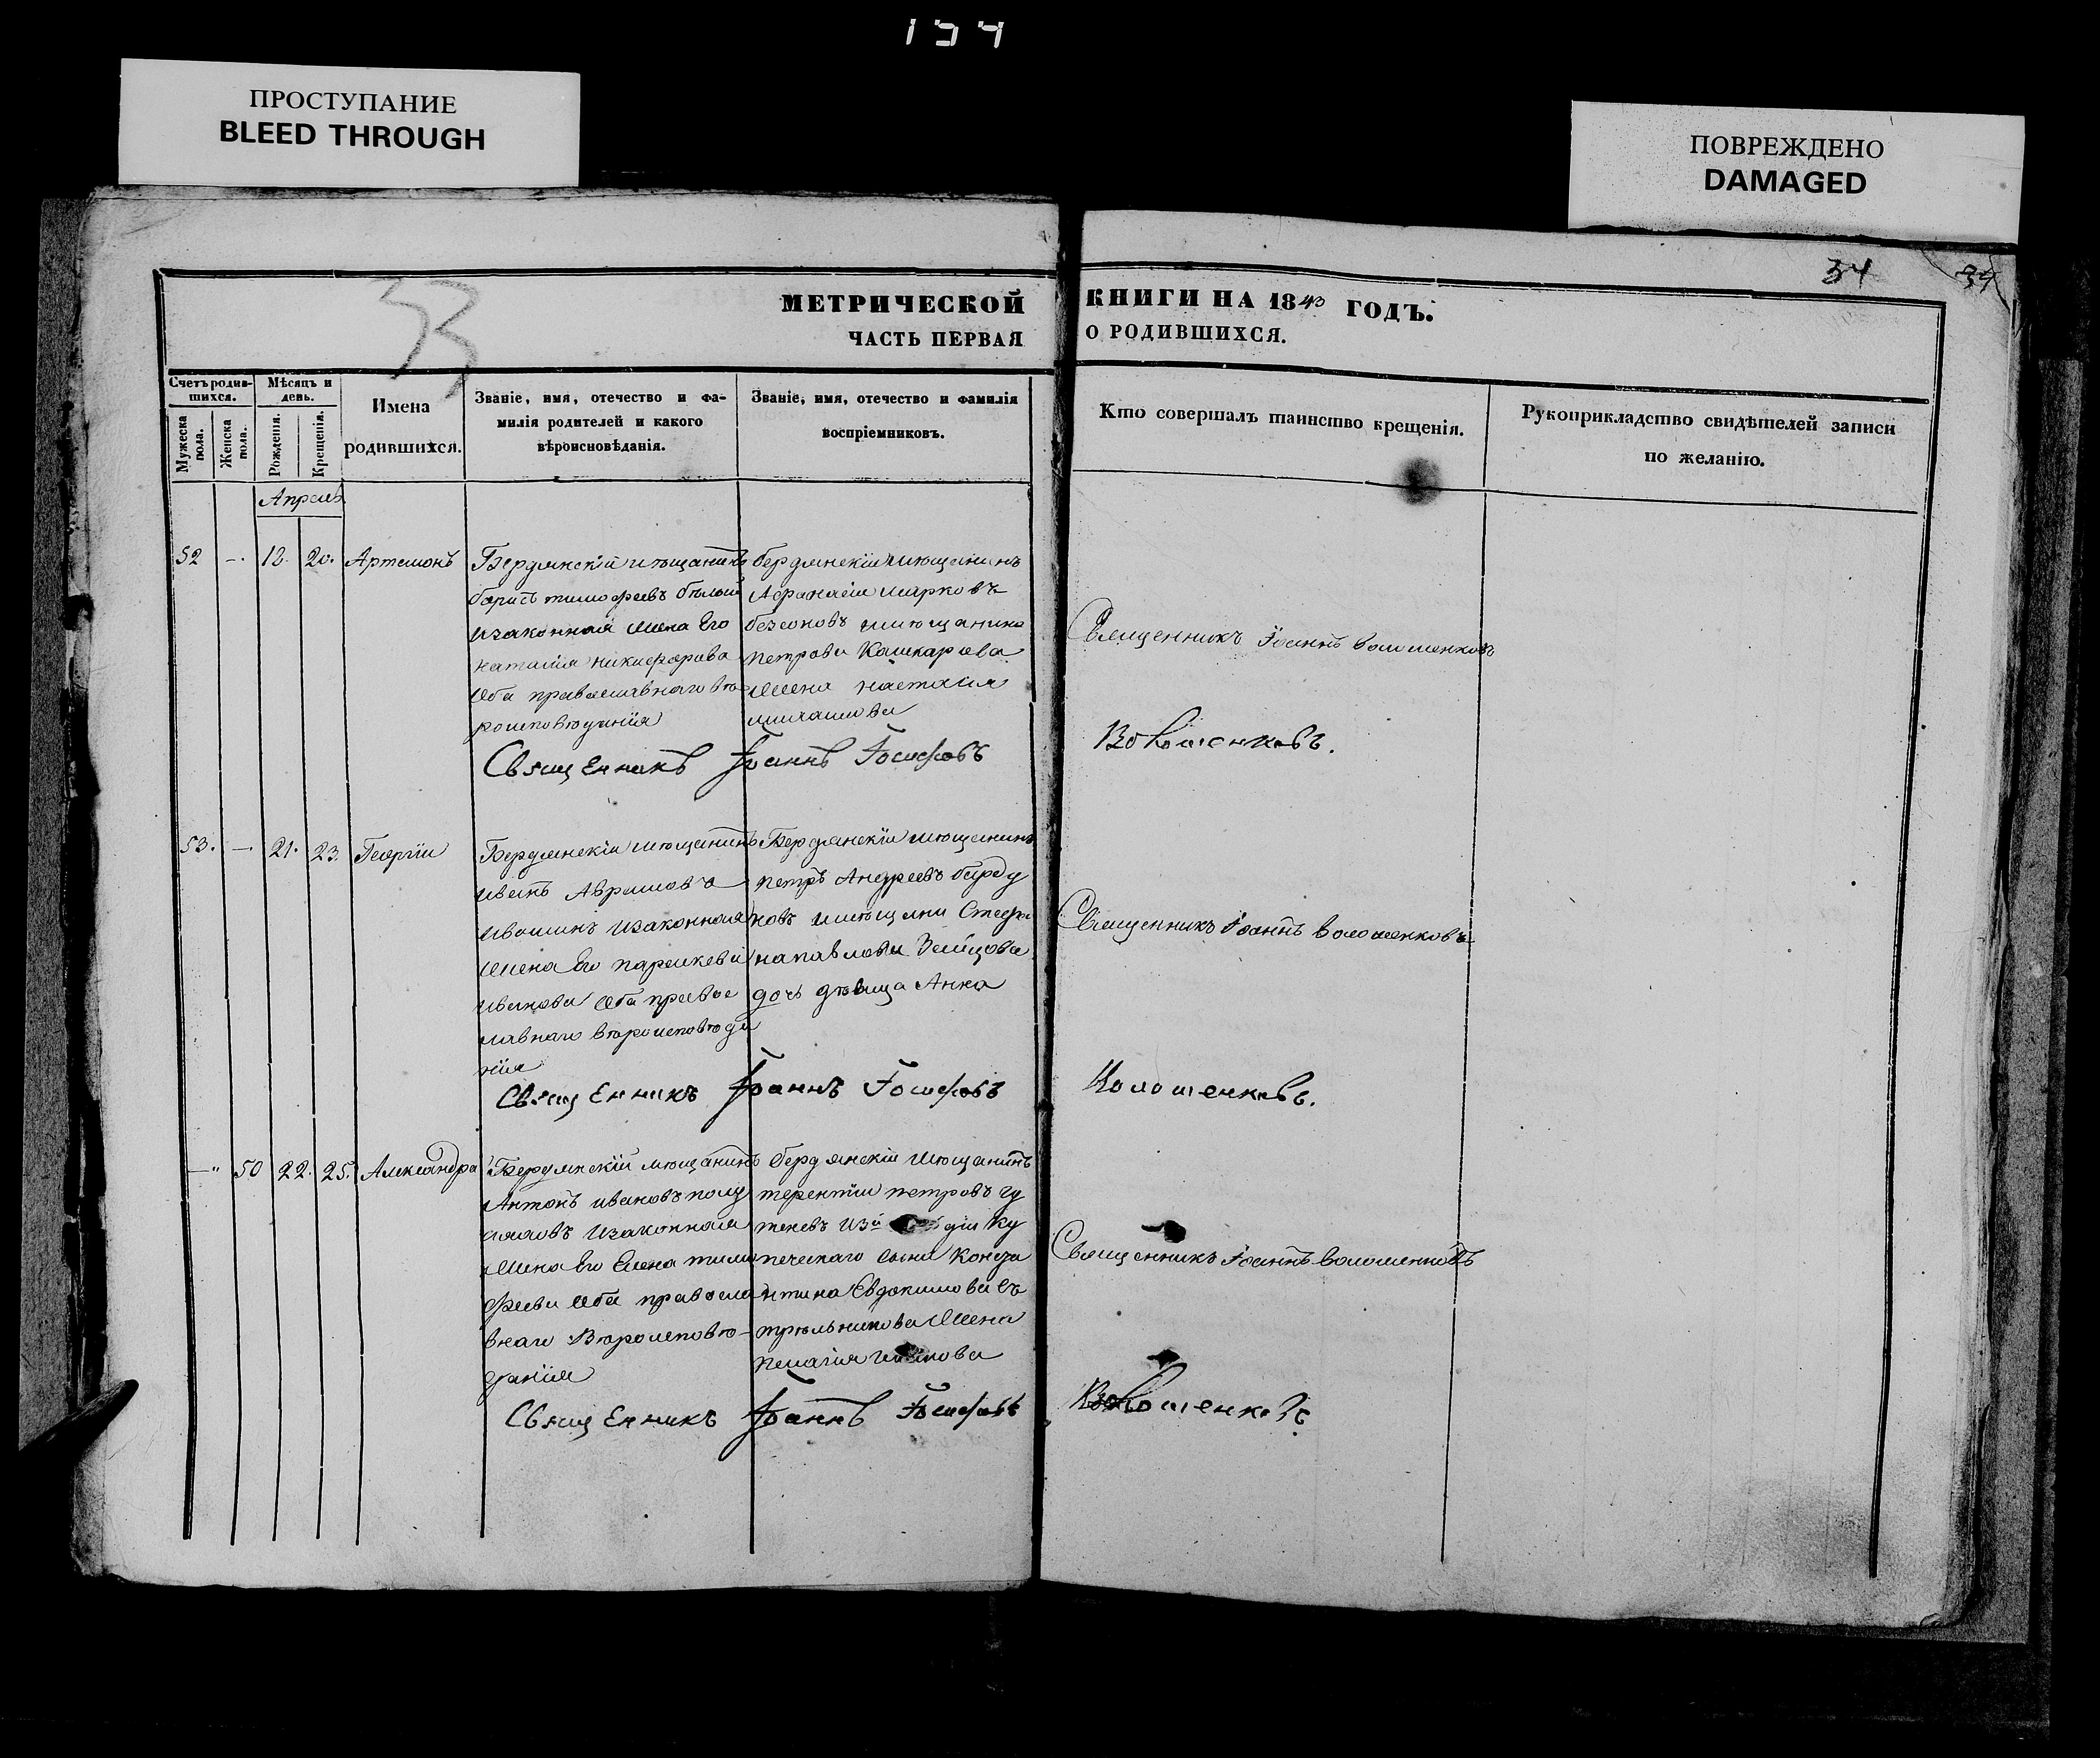 134
ПРОСТУПАНИЕ
BLEED THROUGH
ПОВРЕЖДЕНО
DAMAGED
34
34
33
МЕТРИЧЕСКОЙ
ЧАСТЬ ПЕРВАЯ
КНИГИ НА 1843 ГОДЪ.
О РОДИВШИХСЯ.
Счетъ родив-
шихся.
Мужеска
пола.
Женска
пола.
Мѣсяцъ и
день.
Рожденія.
Крещенія.
Имена
родившихся.
Званіе, имя, отечество и фа-
милія родителей и какого
вѣроисновѣданія.
Званіе, имя, отечество и фамилія
воспріемниковъ.
Кто совершалъ таинство крещенія.
Рукоприкладство свидѣтелей записи
по желанію.
Апрель
52 — 12. 20. Артемонъ
Бердянскій мѣщанинъ
борисъ тимофеевъ бѣлой
изаконная жена Его
наталія никифорова
Оба православнаго вѣ
роисповѣданія
бердянскій мѣщанинъ
Афанасій марковъ
безсоновъ имѣщанина
петрова Кашкарова
жена настасія
Священникъ Іоаннъ волошенковъ
Священникъ Іоаннъ Іосифовъ Волошенковъ.
53. — 21. 23. Георгій
Бердянскій мѣщанинъ
иванъ Аврамовъ
ивашинъ изаконная
жена Его параскева
иванова Оба правос
лавнаго вѣроисповѣда
нія
Бердянскій мѣщанинъ
петръ Андреевъ барду
ковъ имѣщани Стефа
на павлова Зайцова
дочь дѣвица Анна
Священникъ Іоаннъ волошенковъ
Священникъ Іоаннъ Іосифовъ Волошенковъ.
—" 50 22. 25. Александра
Бердянскій мѣщанинъ
Антонъ ивановъ
изаконная
жена Его Елена тимо
фиева Оба правосла
внаго Вѣроисповѣ-
данія
бердянскій мѣщанинъ
терентій петровъ гу
теневъ из ку
печескаго сына Конста
нтина Евдокимова съ
трѣльникова жена
пелагія
Священникъ Іоаннъ волошенковъ
Священникъ Іоаннъ Іосифовъ Волошенковъ